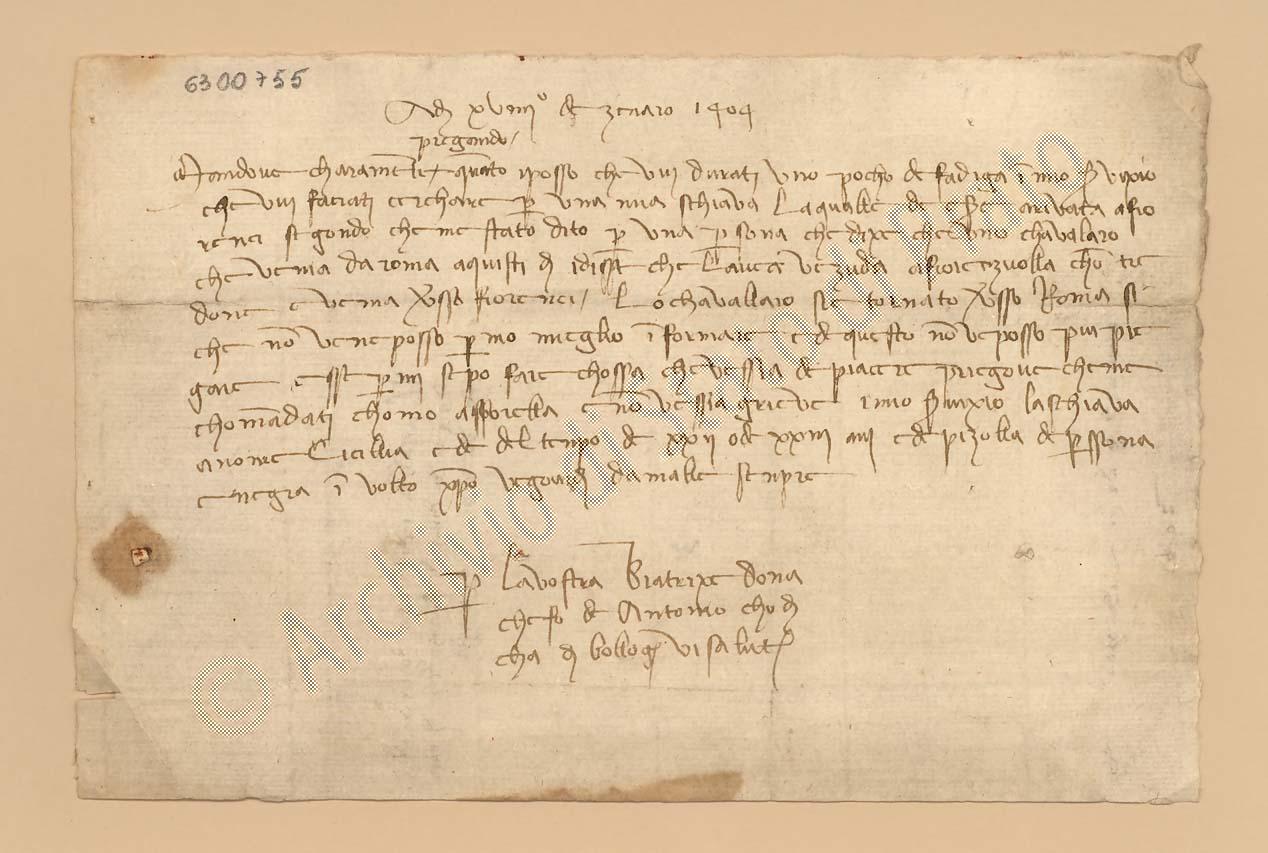 6300755
Adi xviiii° de zenaro 1404
pregando
Mandove charamente quanto iposso che vui durati uno pocho de fadiga in mio servixio
che vui faciati cerchare per una mia schiava la qualle de esere arivata a fio
renci segondo che me stato dito per una persona che dixe che uno chavalaro
che venia da roma a quisti di idisse che l'avea vezuda a fiorenzuolla cho tre
done e venia verso fiorenci. Lo chavallaro si è tornato verso Roma si
che non ve ne posso per mo meglio informare e de questo non ve posso piu pre
gare e sse per mi se po fare chossa che ve ssia de piacere priegove che me
chomandati chomo a ssorella e non ve ssia grieve i mio servixio la schiava
a nome Cicillia e de del tempo de xxii o de xxiii ani e de pizolla de perssona
e negra in volto xpo ve guardi da malle senpre
per La vostra Biatrixe dona
che fo de Antonio cho di
cha di bollogna vi saluta
© Archivio di Stato di Prato